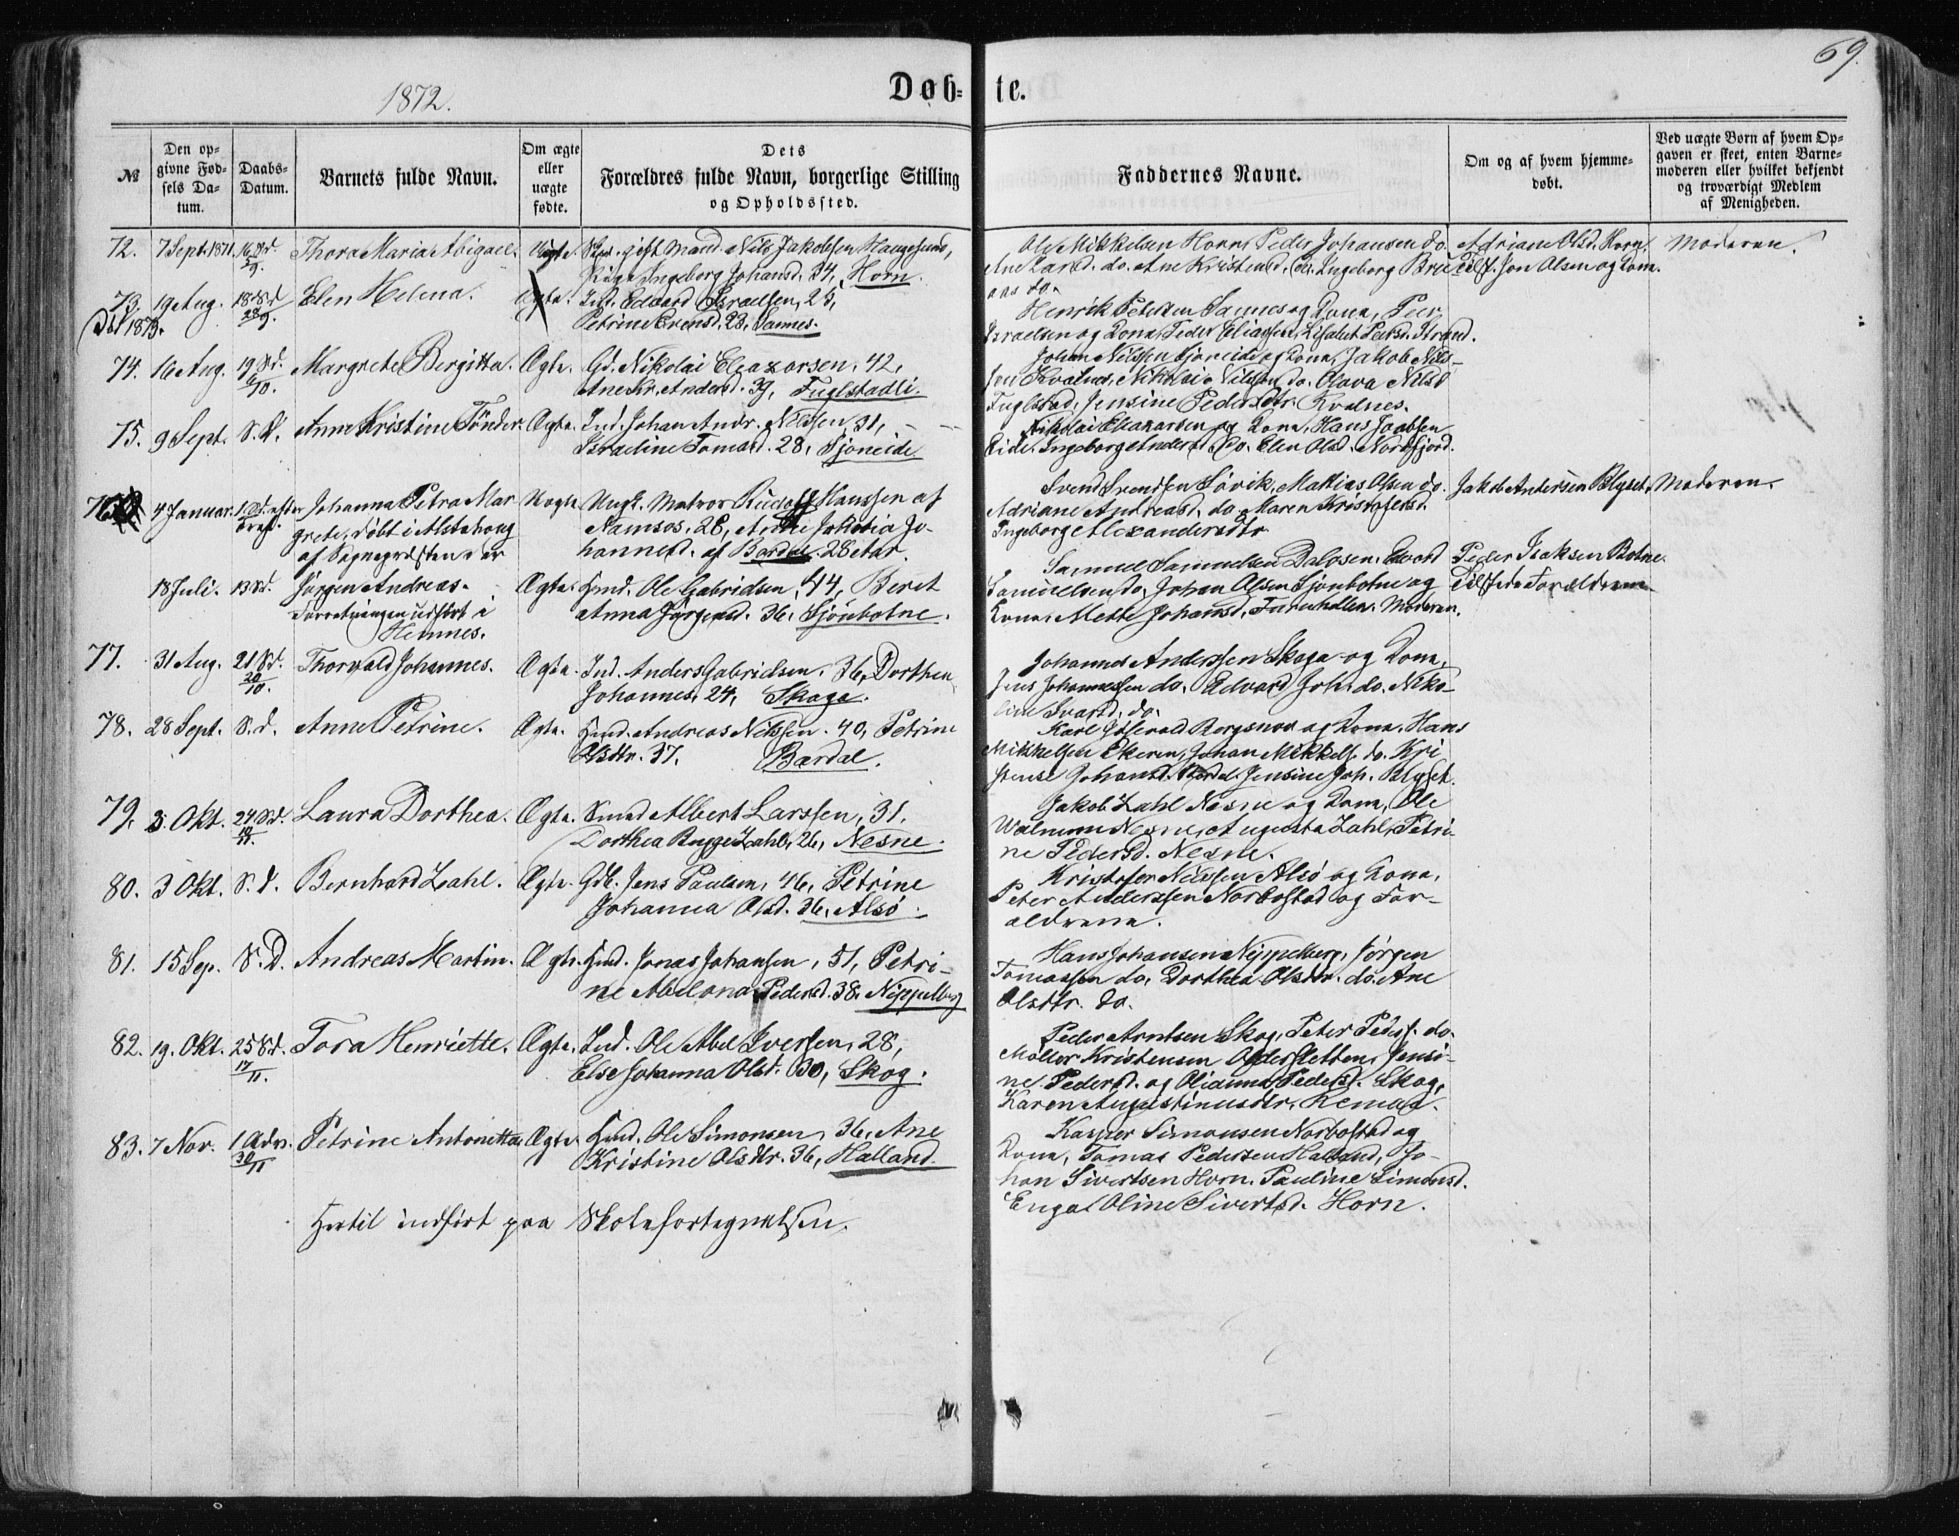 69.
1872.
Døb= te.
№
Den op-
givne Fød-
sels Da-
tum.
Daabs-
Datum.
Barnets fulde Navn.
Om ægte
eller
uægte
fødte.
Dets
Forældres fulde Navn, borgerlige Stilling
og Opholdssted.
Faddernes Navne.
Om og af hvem hjemme-
døbt.
Ved uægte Børn af hvem Op-
gaven er skeet, enten Barne-
moderen eller hvilket bekjendt
og troværdigt Medlem
af Menigheden.
72. 7 Sept. 1871. Thora Maria Abigael. Uægte. gift Mand Nils Jakobsen Haugesund,
Pige Ingeborg Johansd. 34, Horn.
Ole Mikkelsen Horn, Peder Johansen do.
Ane Larsd. do. Ane Kristensd. do. Ingeborg
Adriane Olsd. Horn.
Tilst. Jon Olsen og Kona.
Moderen.
73. 19 Aug. 18 S.d. 29/9. Elen Helena. Ægte. Ind. Edvard Israelsen, 25,
Petrine 23, Sannes.
Henrik Petersen Sannes og Kona, Peer
Israelsen og Kona, Peder Eliassen, Lisabet Pedersd. Strand.
74. 16 Aug. 19 S.d. 6/10. Margrete Bergitta. Ægte. Gd. Nikolai Eleazarsen, 42,
Ane Kr. Andersd. 39, Fuglstadli.
Johan Nilssen Sjoneide og Kona, Jakob Nils-
sen Kvalnes, Nikolai Nilssen do. Olava Nilsd.
Fuglstad, Jensine Pedersdtr. Kvalnes.
75. 9 Sept. S.d. Anne Kristine Tønder. Ægte. Ind. Johan Andr. Nilssen, 31,
Israeline Tomasd. 28, Sjoneide
Nikolai Eleazarsen og Kona, Hans Jacobsen
Eide, Ingeborg Andersd. do. Elen Olsd. Nordfjord.
76 4 Januar. Johanna Petra Mar
grete, døbt i Alstahoug
af Sognepræsten der
Uægte. Ungk. Matros Rudolf Hanssen af
Namsos, 28, Anne Jakobia Jo-
hannesd. af Bardal 28 Aar.
Svend Svendsen Søvik, Mathias Olsen do.
Adriane Andreasd. do. Maren Kristofersd.
Ingeborg Alexandersdtr
Jakob Andersen Blyset. Moderen.
18 Juli. 13 S.d. Jørgen Andreas.
Forretningen udført i
Hemnes.
Ægte. Hmd. Ole Gabrielsen, 44, Beret
Anna Jørgensd. 36, Sjonbotne.
Samuel Samuelsen Dalosen, Edvard
Samuelsen do. Johan Olsen Sjonbotne og
Kona, Mette Johansd. Furuhatten. Moderen.
Peder Isaksen Botne.
Tilstede Forældrene
77. 31 Aug. 21 S.d. 20/10. Thorvald Johannes. Ægte. Ind. Anders Gabrielsen, 36, Dorthea
Johannesd. 24, Skaga.
Johannes Anderssen Skaga og Kona,
Jens Johannessen do. Edvard Joh. do. Niko-
line Ivarsd. do.
78. 28 Sept. S.d. Anne Petrine. Ægte. Hmd. Andreas Nilssen. 40, Petrine
Olsdtr. 37. Bardal.
Karl og Kona, Hans
Mikkelsen Ekeren, Johan Mikkels. do. Kri
stense Johansd. Bardal, Jensine Joh. Blyset.
79. 3. Okt. 24 S.d. Laura Dorthea. Ægte. Smed Albert Larssen, 31.
Dorthea Bugge Zahl, 26, Nesne.
Jakob Zahl Nesne og Kona, Ole
Walnum Nesne, Augusta Zahl, Petri-
ne Pedersd. Nesne.
80. 3 Okt. S.d. Bernhard Zahl. Ægte. Gdb. Jens Paulsen, 46, Petrine
Johanna Olsd. 36, Alsø.
Kristofer Nilssen Alsø og Kona,
Peter Anderssen Norbostad og For-
ældrene.
81. 15 Sep. S.D. Andreas Martin. Ægte. Hmd. Jonas Johansen, 51, Petri-
ne Abelona Pedersd. 38, Nippelberg
Hans Johansen Nippelberg, Jørgen
Tomassen do. Dorthea Olsdtr. do. Ane
Olsdtr. do.
82. 19. Okt. 25 S.d. 17/11. Tora Henriette. Ægte. Ind. Ole Abel Iversen, 28,
Else Johanna Olsd. 30, Skog.
Peder Arntsen Skog, Peter Peders. do.
Møller Kristensen Oldersletten, Jensi-
ne Pedersd. og Olianna Pedersd. Skog,
Karen Augustinusdtr. Remaa.
83. 7 Nov. 1 Adv. 30/11 Petrine Antonetta Ægte Hmd. Ole Simonsen, 36, Ane
Kristine Olsdtr. 36, Halland.
Kasper Simonsen Norbostad og
Kona, Tomas Pedersen Halland, Jo-
han Sivertsen Horn. Pauline Simonsd.
Enga, Oline Sivertsd. Horn.
Hertil indført paa Skolefortegnelsen.